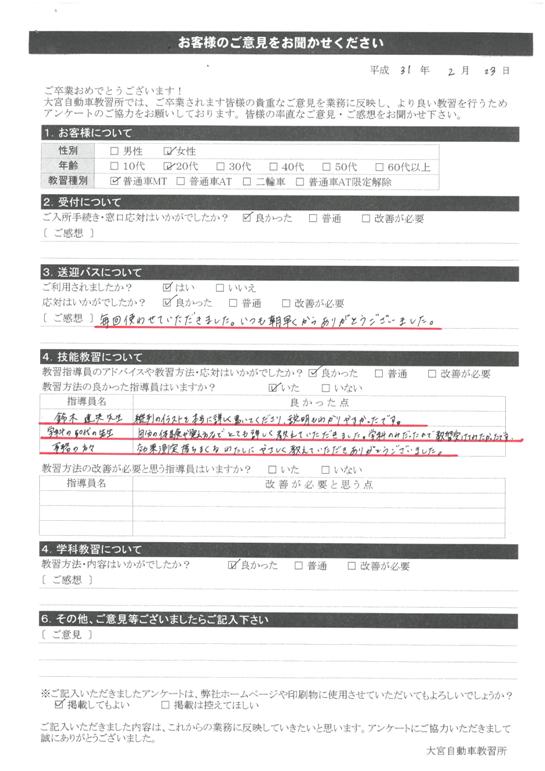 お客様のご意見をお聞かせください
平成 31 年 2 月 23 日
ご卒業おめでとうございます！
大宮自動車教習所では、ご卒業されます皆様の貴重なご意見を業務に反映し、より良い教習を行うため
アンケートのご協力をお願いしております。皆様の率直なご意見・ご感想をお聞かせ下さい。
1. お客様について
性別 □ 男性 ☑ 女性
年齢 □ 10代 ☑ 20代 □ 30代 □ 40代 □ 50代 □ 60代以上
教習種別 ☑ 普通車MT □ 普通車AT □ 二輪車 □ 普通車AT限定解除
2. 受付について
ご入所手続き・窓口応対はいかがでしたか？ ☑ 良かった □ 普通 □ 改善が必要
〔 ご感想 〕
3. 送迎バスについて
ご利用されましたか？ ☑ はい □ いいえ
応対はいかがでしたか？ ☑ 良かった □ 普通 □ 改善が必要
〔 ご感想 〕 毎回使わせていただきました。いつも朝早くからありがとうございました。
4. 技能教習について
教習指導員のアドバイスや教習方法・応対はいかがでしたか？ ☑ 良かった □ 普通 □ 改善が必要
教習方法の良かった指導員はいますか？ ☑ いた □ いない
指導員名 良かった点
鈴木 先生 イラストを 詳しく書いてくださり、説明もわかりやすかったです。
学科の 先生 自分の体験や覚え方などとても詳しく教えていただきました。学科のみだったので教習受けてみたかったです。
事務の方々 効果測定落ちまくる わたしに やさしく教えていただきありがとうございました。
教習方法の改善が必要と思う指導員はいますか？ □ いた □ いない
指導員名 改善が必要と思う点
4. 学科教習について
教習方法・内容はいかがでしたか？ ☑ 良かった □ 普通 □ 改善が必要
〔 ご感想 〕
6. その他、ご意見等ございましたらご記入下さい
〔 ご意見 〕
※ご記入いただきましたアンケートは、弊社ホームページや印刷物に使用させていただいてもよろしいでしょうか？
☑ 掲載してもよい □ 掲載は控えてほしい
ご記入いただきました内容は、これからの業務に反映していきたいと思います。アンケートにご協力いただきまして
誠にありがとうございました。
大宮自動車教習所